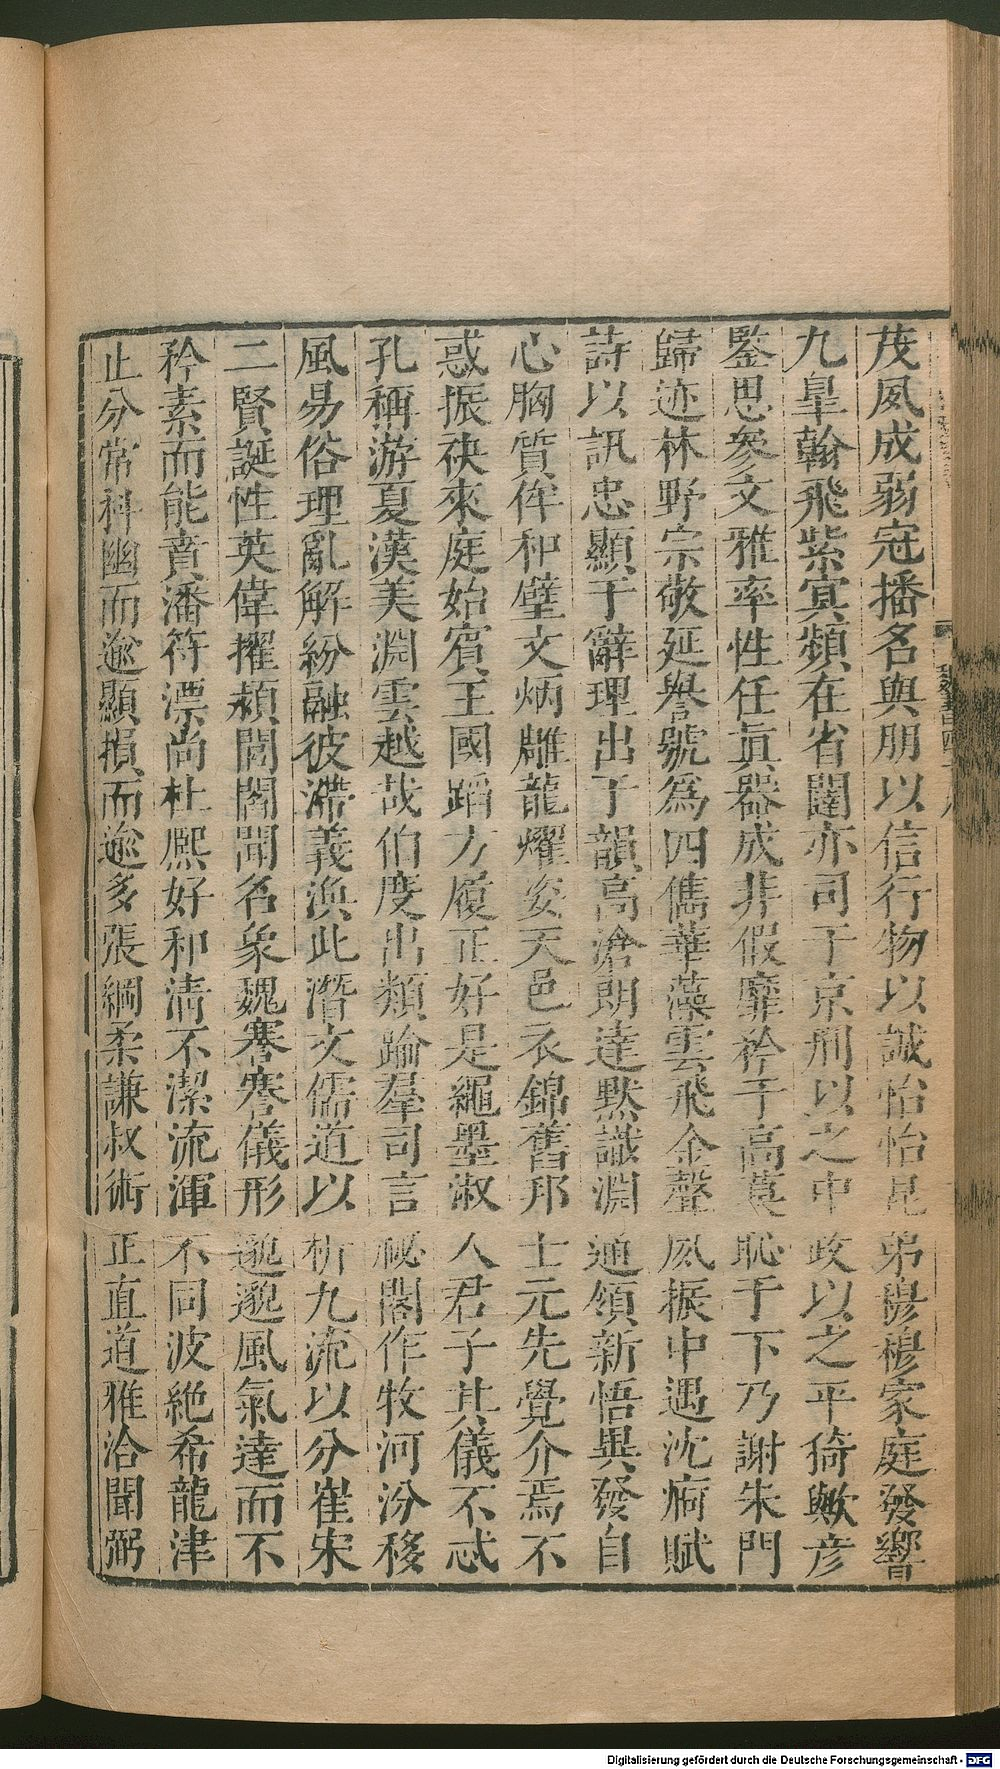 茂夙成弱冠播名與朋以信行物以誠怡怡昆弟穆穆家庭發響
九皐翰飛紫冥頻在省闥亦司于京刑以之中政以之平猗歟彦
鑒思參文雅率性任眞器成非假靡矜于高莫恥于下乃謝朱門
歸迹林野宗敬延譽號爲四儁華藻雲飛金聲夙振中遇沈痾賦
詩以訊忠顯于辭理出于韻高滄朗達默識淵通領新悟異發自
心胸質侔和璧文炳雕龍燿姿天邑衣錦舊邦士元先覺介焉不
惑振袂來庭始賓王國蹈方履正好是繩墨淑人君子其儀不忒
孔稱游夏漢美淵雲越哉伯度出類踰羣司言祕閣作牧河汾移
風易俗理亂解紛融彼滯義渙此潛文儒道以析九流以分崔宋
二賢誕性英偉擢穎閭閻聞名象魏謇謇儀形邈邈風氣達而不
矜素而能賁潘符漂尚杜熙好和清不潔流渾不同波絶希龍津
止分常科幽而逾顯損而逾多張綱柔謙叔術正直道雅洽聞弼
Digitalisierung gefördert durch die Deutsche Forschungsgemeinschaft - DFG